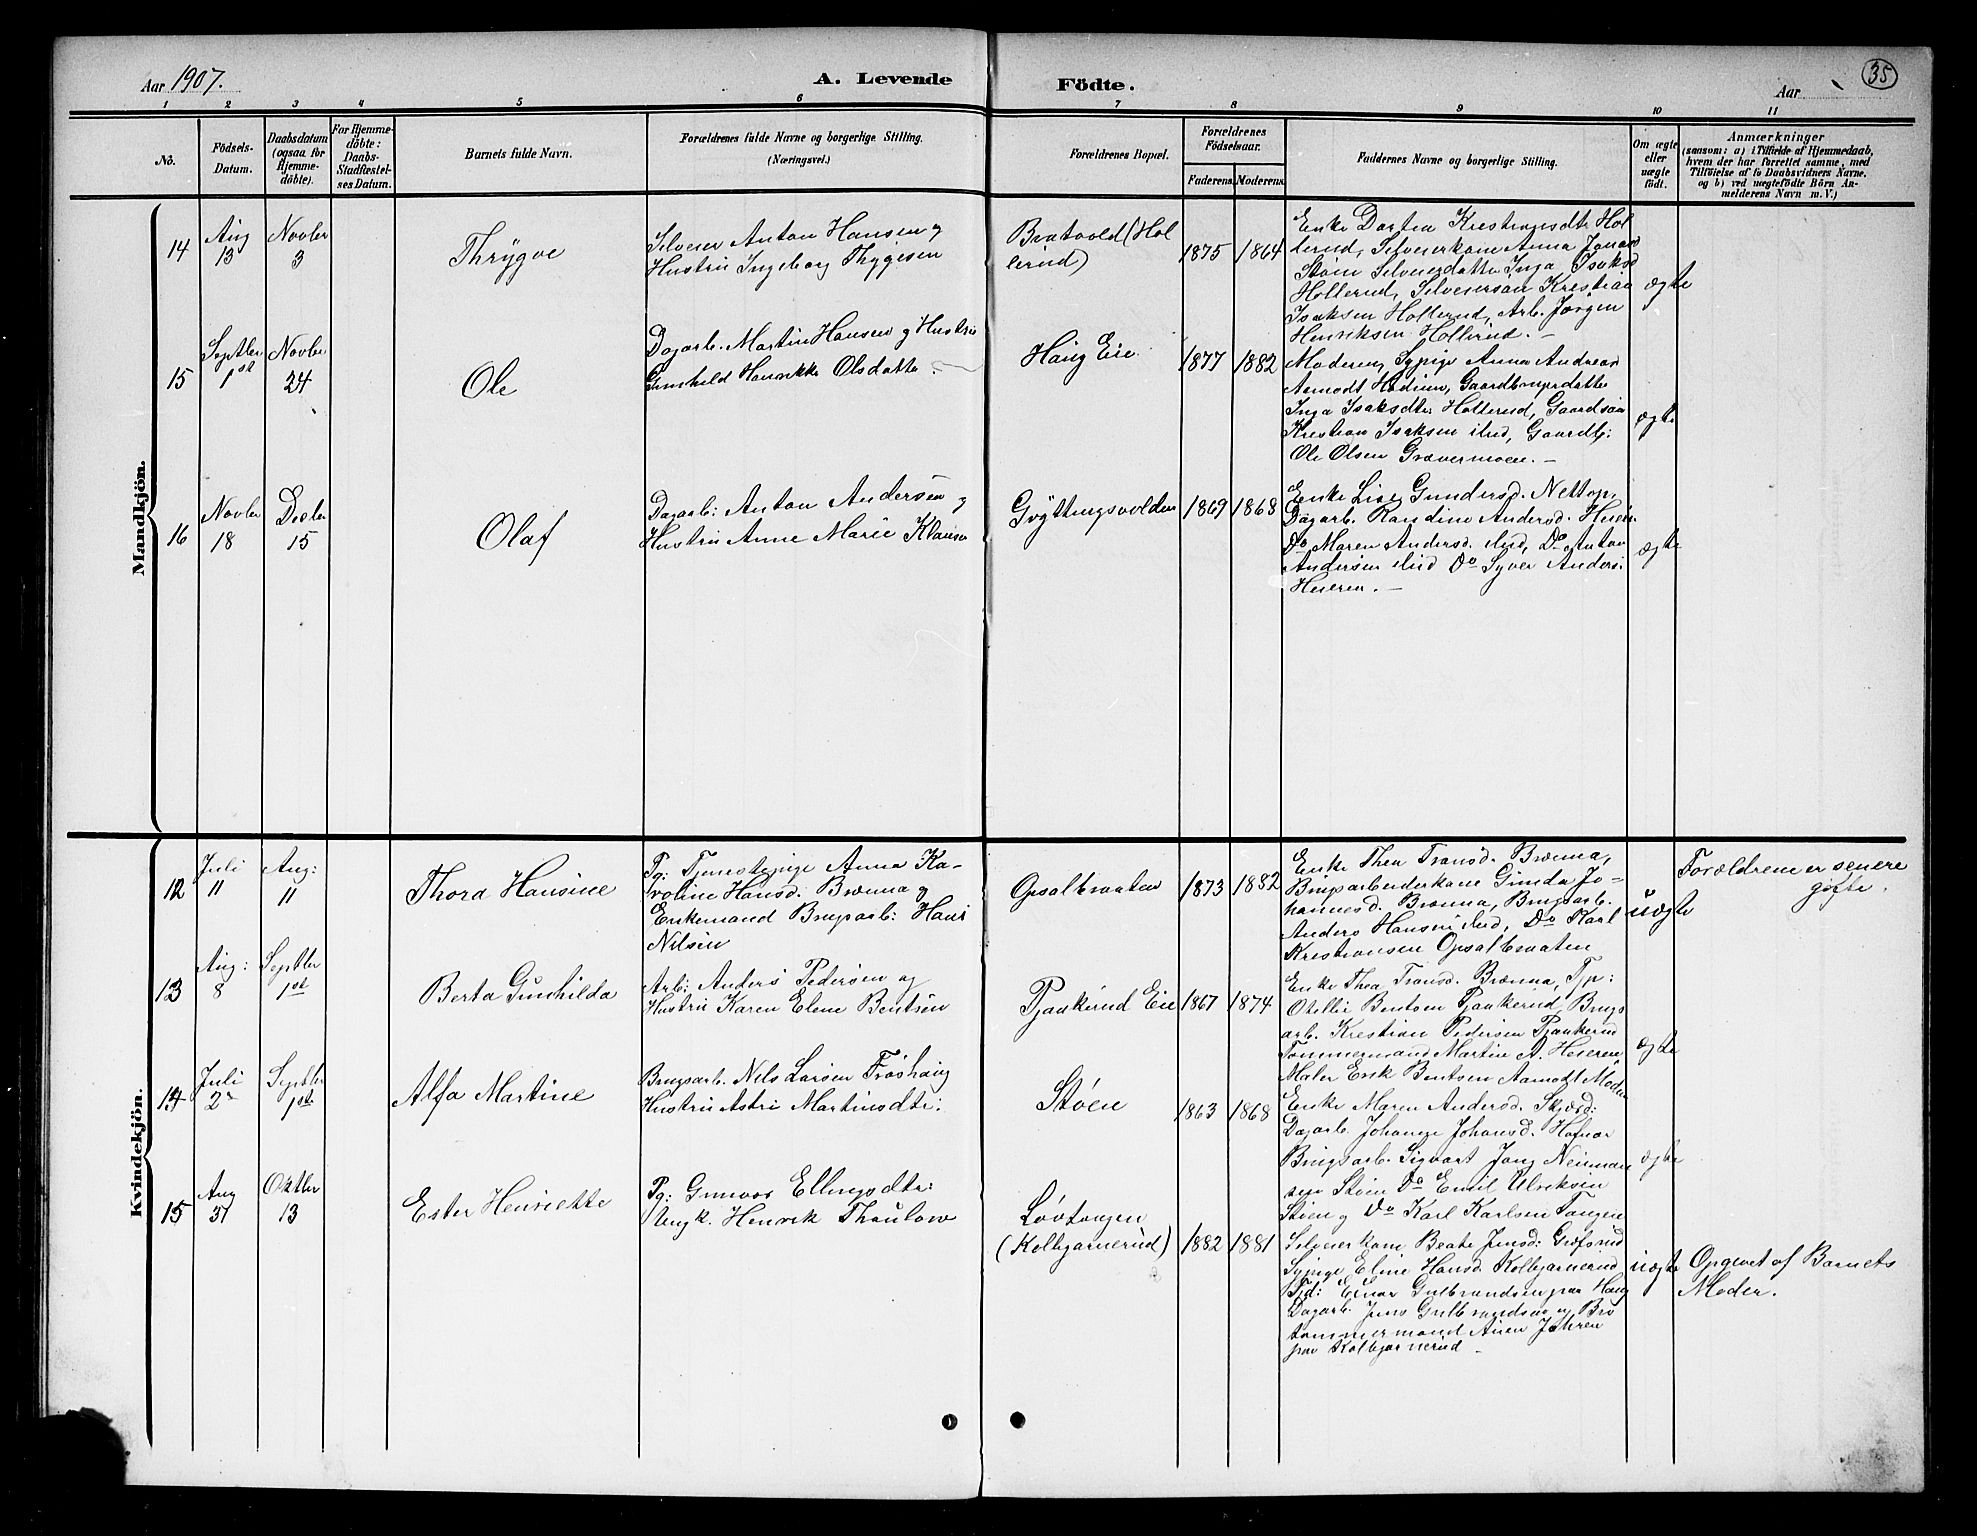 Aar 1907.
A. Levende Födte.
Aar
35
1 2 3 4 5 6 7 8 9 10 11
No.
Födsels-
Datum.
Daabsdatum
(ogsaa for
Hjemme-
döbte).
For Hjemme-
döbte:
Daabs-
Stadfæstel-
ses Datum.
Barnets fulde Navn.
Forældrenes fulde Navne og borgerlige Stilling.
(Næringsvei.)
Forældrenes Bopæl.
Forældrenes
Födselsaar.
Faderens. Moderens.
Faddernes Navne og borgerlige Stilling.
Om ægte
eller
uægte
födt.
Anmærkninger
(saasom: a) i Tilfælde af Hjemmedaab,
hvem der har forrettet samme, med
Tilföielse af to Daabsvidners Navne.
og b) ved uægtefödte Börn An-
melderens Navn m. V.)
Mandkjön.
14
Aug
13
Novber
3
Thrygve
Selveier Anton Hansen og
Hustru Ingeborg Thygesen
Bratvold (Hol
lerud)
1875
1864
Enke Dortea Kristiansdtr Hol
lerud, Selveierkone Anna
Støen Selveierdatter Inga Isaksd
Hollerud, Selveiersøn Kristian
Isaksen Hollerud, Arb. Jørgen
Henriksen Hollerud. –
ægte
15
Septber
1st
Novber
24
Ole
Dagarb. Martin Hansen og Hustru
Gunhild Henrikke Olsdatter.
Haug Eie
1877
1882
Moderen, Sypige Anna Andrea
Aamodt Gaardbrugerdatter
Inga Isaksdtr Hollerud, Gaardsøn
Kristian Isaksen ibid, Gaardb:
Ole Olsen Grævermoen. –
ægte
16
Novber
18
Decbr
15
Olaf
Dagarb: Anton Andersen og
Hustru Anne Marie Klausen
Gryttingsvolden
1869
1868
Enke Lise Gundersd. Nettop,
Dagarb. Randine Andersd. Heieren
Do Maren Andersd. ibid, Do Anton
Andersen ibid Do Syver Anders:
Heieren. –
ægte
Kvindekjön.
12
Juli
11
Aug:
11
Thora Hansine
Pg: Tjenestepige Anna Ka-
roline Hansd. Brænna og
Enkemand Brugsarb: Hans
Nilsen
Opsalbraaten
1873
1882
Enke Thea Fransd. Brænna,
Brugsarbeiderkone Gunda Jo-
hannesd. Brænna, Brugsarb.
Anders Hansen ibid, Do Karl
Kristiansen Opsalbraaten
uægte
Forældrene er senere
gifte.
13
Aug:
8
Septber
1st
Berta Gunhilda
Arb: Anders Pedersen og
Hustru Karen Elene Bentsen
Pjaakerud Eie
1867
1874
Enke Thea Fransd. Brænna, Tjp:
Otellie Bentsen Pjaakerud, Brugs
arb. Kristian Pedersen Pjaakerud
Tømmermand Martin A. Heieren
Maler Erik Bentsen Aamodt Moder
ægte
14
Juli
Septber
1st
Alfa Martine
Brugsarb. Nils Larsen Frøshaug
Hustru Astri Martinsdtr:
Støen
1863
1868
Enke Maren Andersd.
Dagarb. Johansd. Hafnor
Brugsarb. Sigvart Jong Neuman
sen Støen Do Emil Ulriksen
Støen og Do Karl Karlsen Tangen
ægte
15
Aug
31
Oktbr
13
Ester Henriette
Pg: Gunvor Ellingsdtr:
Ungk. Henrik Thaulow
Løvtangen
(Kolbjørnerud)
1882
1881
Selveierkone Beate Jensd:
Sypige Eline Hansd. Kolbjørnerud
Einar Gulbrandsen paa Haug
Dagarb. Jens Gulbrandsen og Bro
tømmermand Jahren
paa Kolbjørnerud –
uægte
Opgivet af Barnets
Moder.